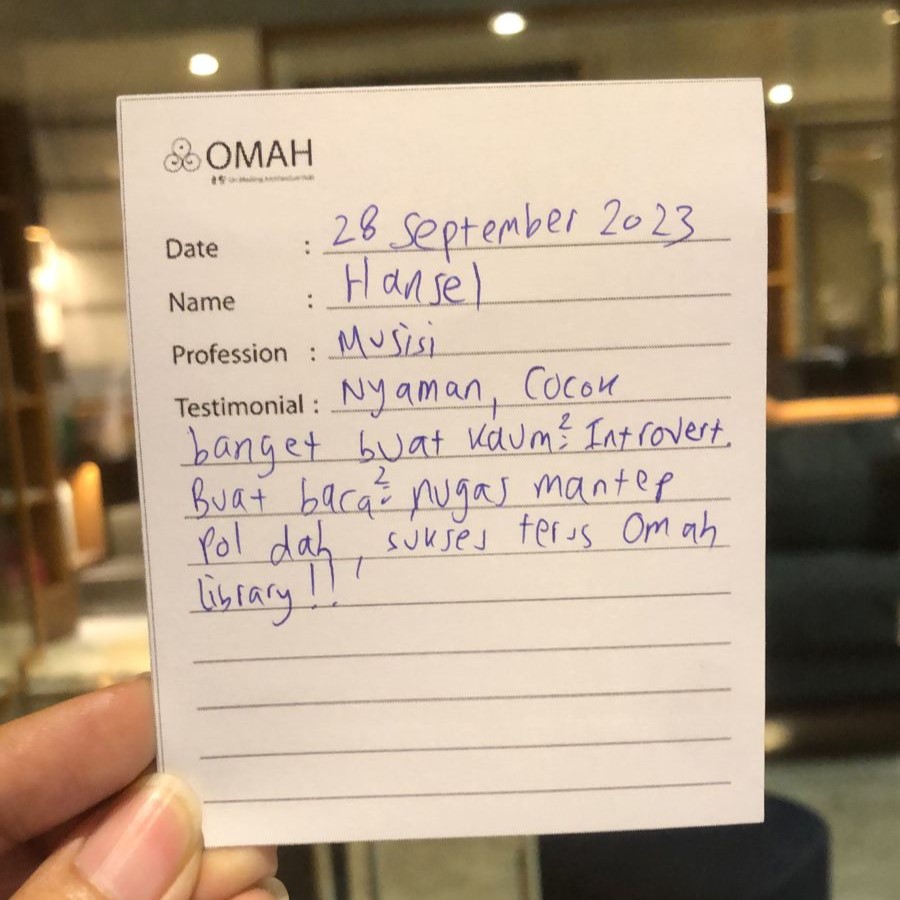 OMAH
Date : 28 September 2023
Name : Hansel
Profession : Musisi
Testimonial : Nyaman, Cocok
banget buat kaum² Introvert.
Buat baca² nugas mantep
pol dah, sukses terus Omah
library!!